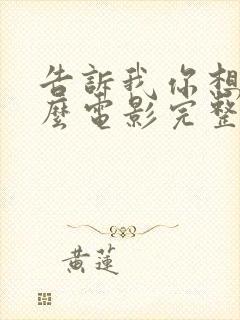 告訴我你想
麼電影完整
黃蓮